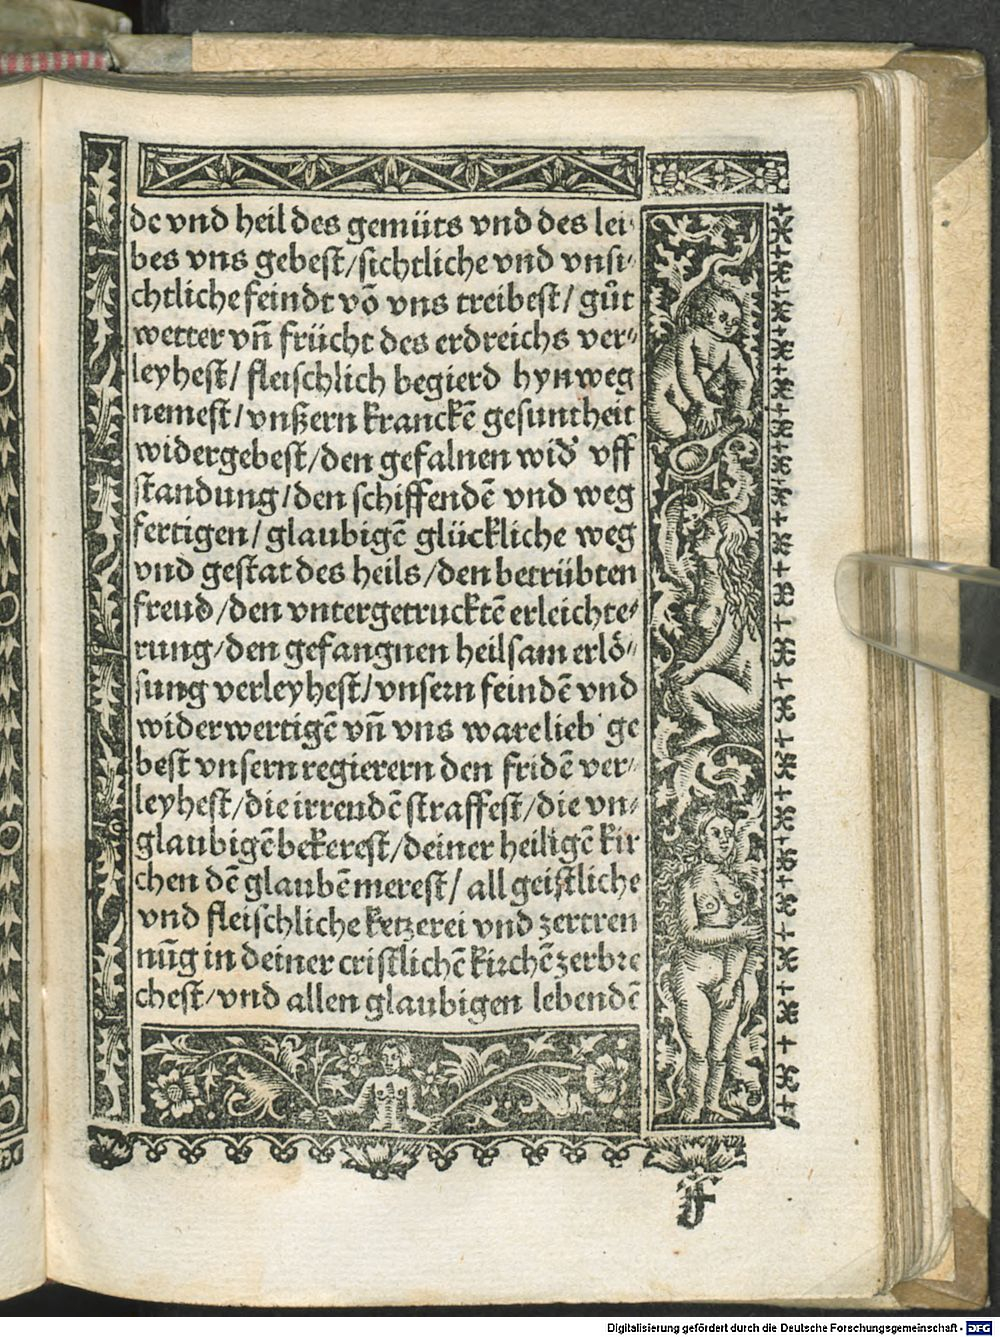 de vnd heil des gemüts vnd des lei⸗
bes vns gebest/sichtliche vnd vnsi⸗
chtliche feindt võ vns treibest/ gůt
wetter vñ frücht des erdreichs ver⸗
leyhest/ fleischlich begierd hynweg
nemest/vnßern kranckẽ gesuntheit
widergebest/den gefalnen wid᷑ vff
standung/den schiffendẽ vnd weg
fertigen/ glaubigẽ glückliche weg
vnd gestat des heils/den betrübten
freud/den vntergetrucktẽ erleichte⸗
rung/den gefangnen heilsam erlö⸗
sung verleyhest/vnsern feindẽ vnd
widerwertigẽ vñ vns ware lieb ge
best vnsern regierern den fridẽ ver⸗
leyhest/die irrendẽ straffest/die vn⸗
glaubigẽ bekerest/deiner heiligẽ kir
chen dẽ glaubẽ merest/ all geistliche
vnd fleischliche ketzerei vnd zertren
nũg in deiner cristlichẽ kirchẽ zerbre
chest/vnd allen glaubigen lebendẽ
f
Digitalisierung gefördert durch die Deutsche Forschungsgemeinschaft - DFG